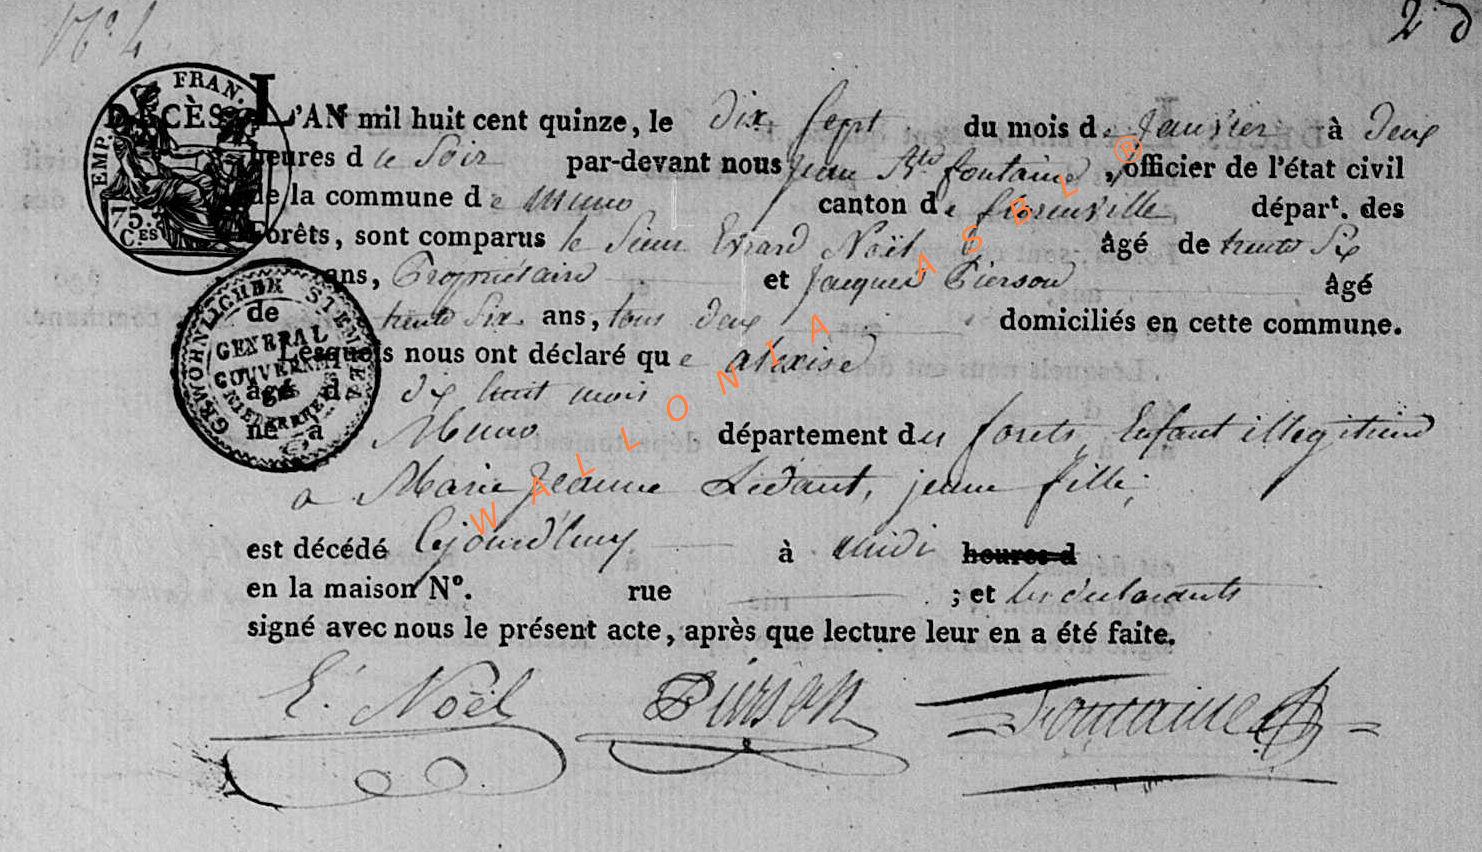 N° 4
2 d
DÉCÈS. L'AN mil huit cent quinze, le dix sept du mois de Janvier à deux
heures d le Soir par-devant nous Jean Bte fontaine, officier de l'état civil
de la commune de Muno canton de florenville, départ. des
Forêts, sont comparus le Sieur Evrard Noël âgé de trente Six
ans, Propriétaire et Jacques Pierson âgé
de trente Six ans, tous deux domiciliés en cette commune.
Lesquels nous ont déclaré que alexise
âgé d dix huit mois
né à Muno département des forets, Enfant illegitime
a Marie Jeanne Ledant, jeune fille;
est décédé Cejourd'huy à midi heures d
en la maison N°. rue ; et les déclarants
signé avec nous le présent acte, après que lecture leur en a été faite.
E. Noël Pierson Fontaine
EMP. FRAN.
75
CES
GEWOHNLICHER STEMPEL
GENERAL
GOUVERNMT
NIEDERRHEIN
WALLONIA ASBL ®